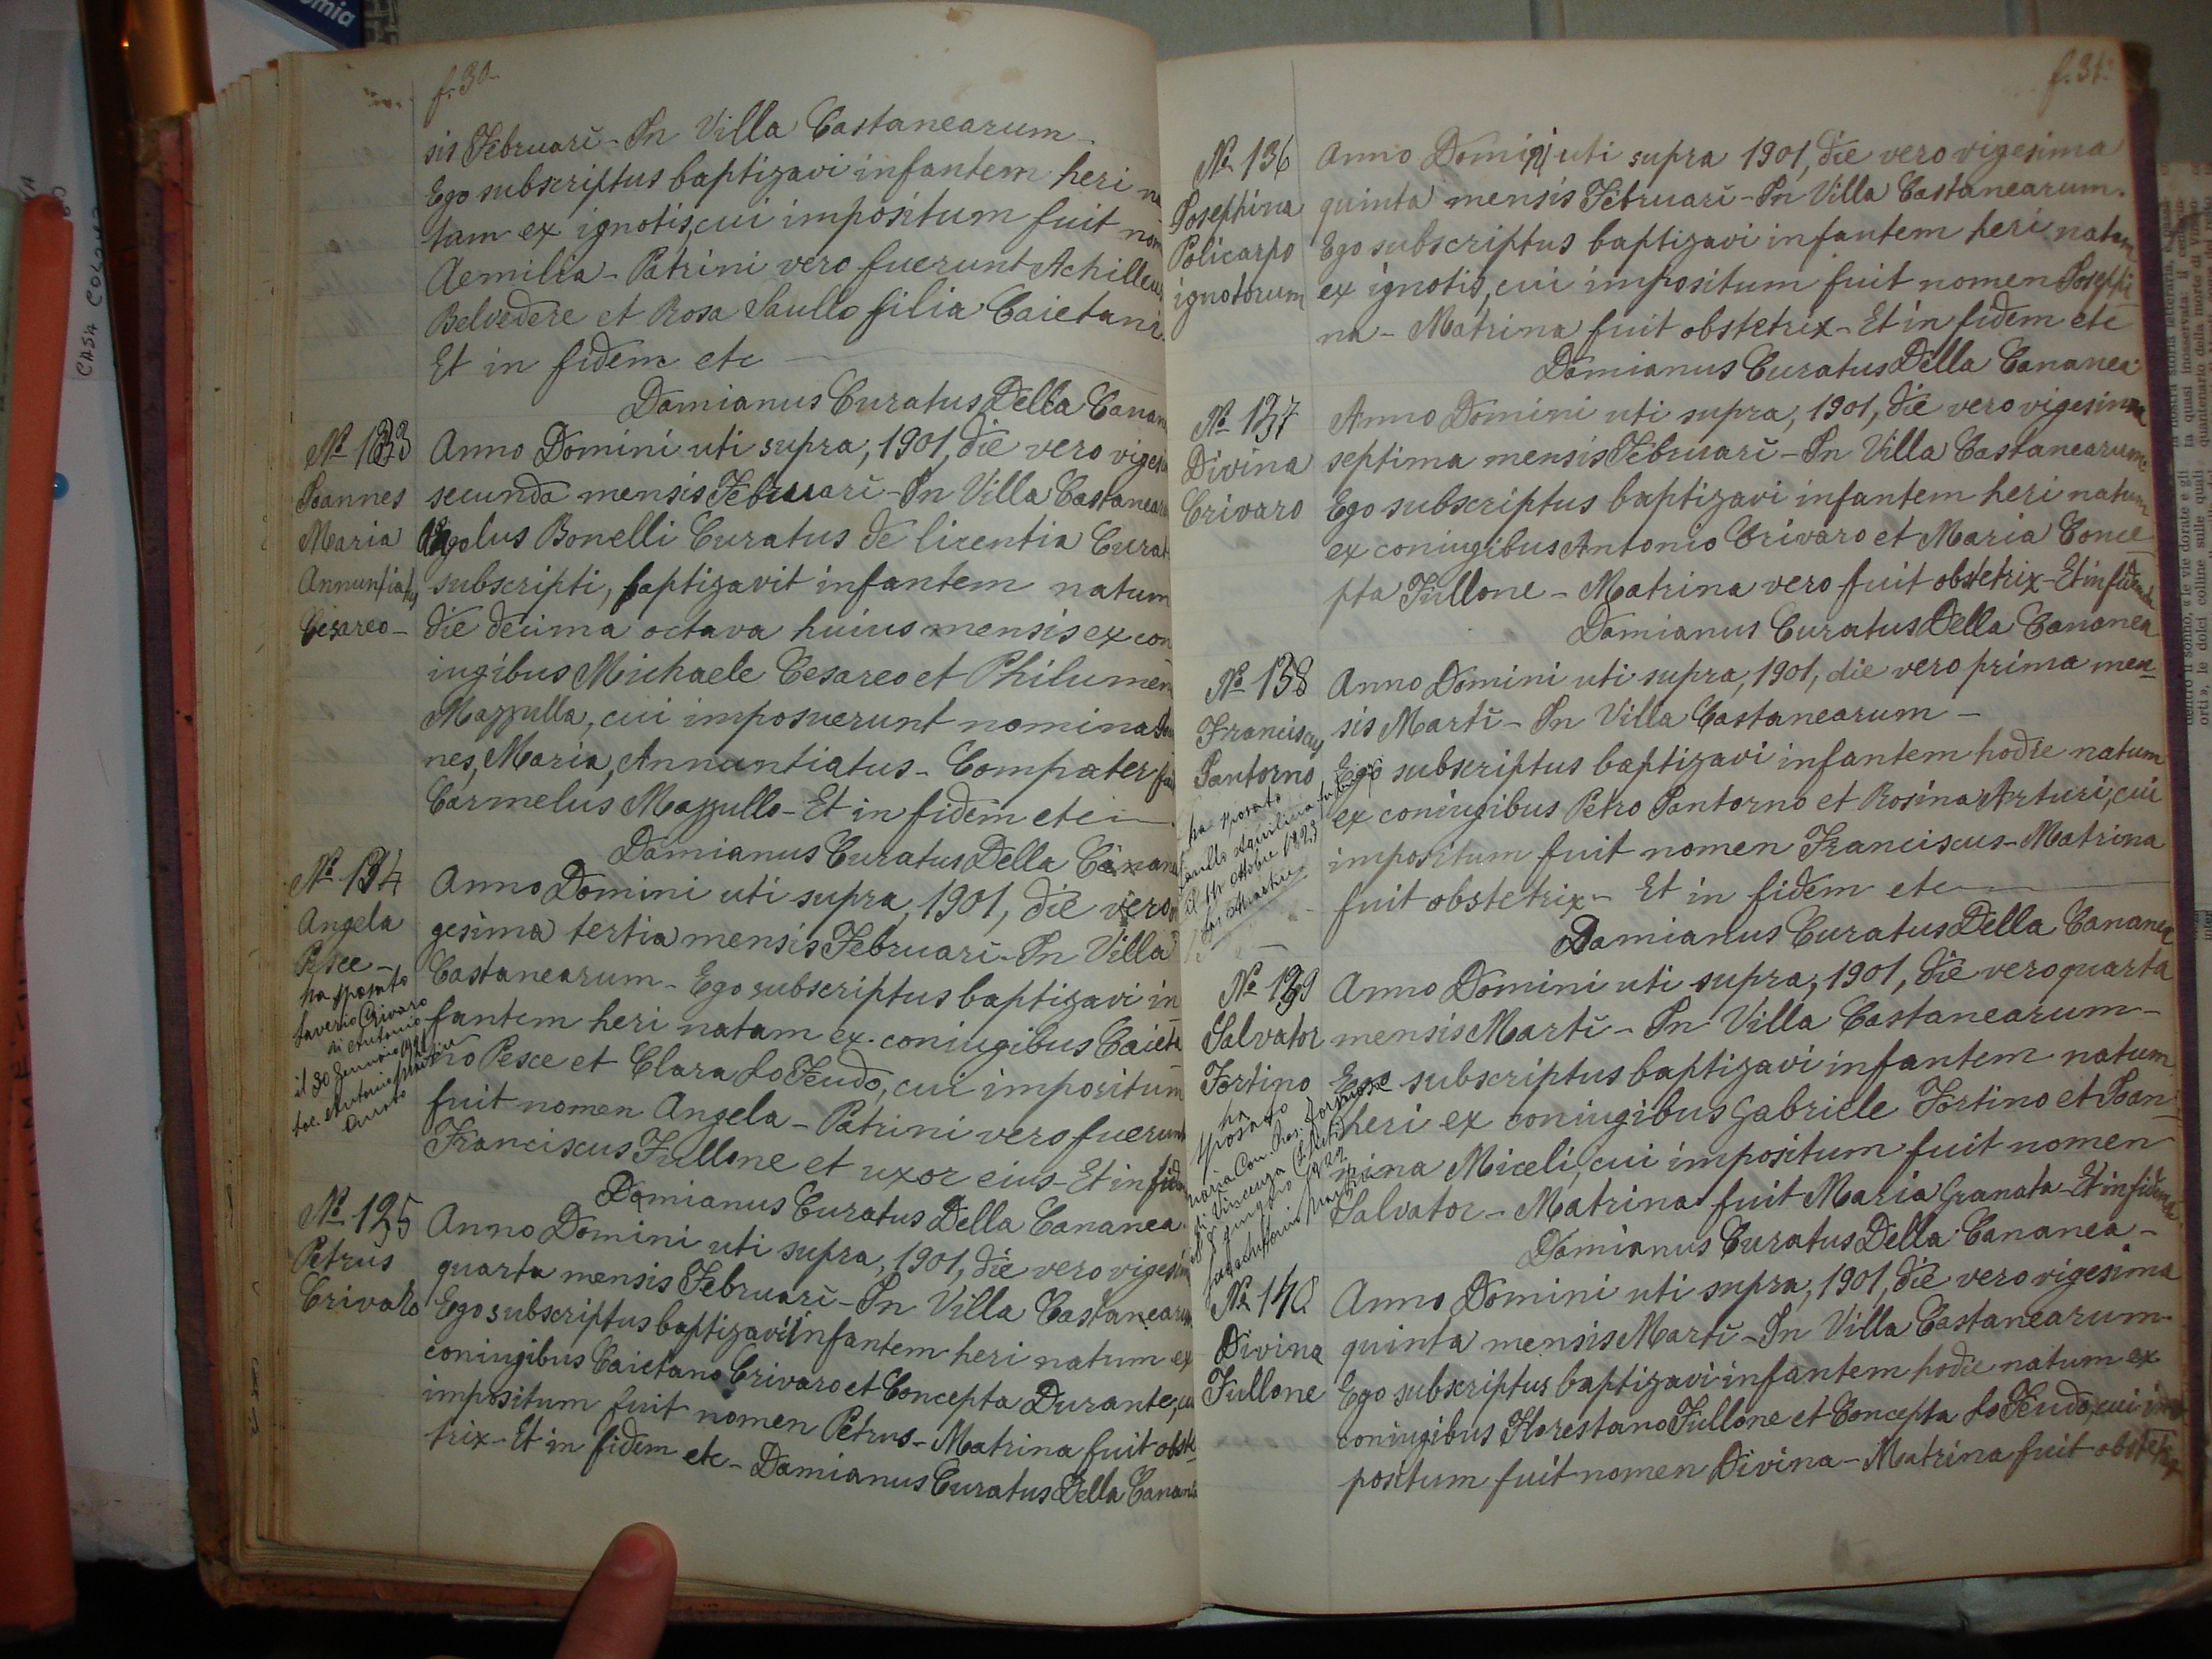 f. 30
sis Februarii - In Villa Castanearum
Ego subscriptus baptizavi infantem heri na
tam ex ignotis, cui impositum fuit nom
Aemilia - Patrini vero fuerunt Achilleus
Belvedere et Rosa Saullo filia Caietani.
Et in fidem etc
Damianus Curatus Della Canan
No 133
Joannes
Maria
Annuntiatus
Cesareo -
Anno Domini uti supra, 1901, die vero viges
secunda mensis Februarii - In Villa Castanear
Bonelli Curatus de licentia Curat
subscripti, baptizavit infantem natum
die decima octava huius mensis ex con
iugibus Michaele Cesareo et Philumen
Mazzulla, cui imposuerunt nomina Joan
nes, Maria, Annuntiatus - Compater fui
Carmelus Mazzullo - Et in fidem etc
Damianus Curatus Della Canane
No 134
Angela
Pesce -
ha sposato
Saverio Crivaro
di Antonio
il 30 Gennaio
Anno Domini uti supra, 1901, die vero vi
gesima tertia mensis Februarii - In Villa
Castanearum - Ego subscriptus baptizavi in
fantem heri natam ex coniugibus Caieta
no Pesce et Clara Lo Feudo, cui impositum
fuit nomen Angela - Patrini vero fuerunt
Franciscus Fullone et uxor eius - Et in fidem
Damianus Curatus Della Cananea
No 135
Petrus
Crivaro
Anno Domini uti supra, 1901, die vero vigesim
quarta mensis Februarii - In Villa Castanearum
Ego subscriptus baptizavi infantem heri natum ex
coniugibus Caietano Crivaro et Concepta Durante, cui
impositum fuit nomen Petrus - Matrina fuit obste
trix - Et in fidem etc - Damianus Curatus Della Canane
f. 31.
No 136
Josephina
Policarpo
ignotorum
Anno Domini uti supra 1901, die vero vigesima
quinta mensis Februarii - In Villa Castanearum.
Ego subscriptus baptizavi infantem heri natam
ex ignotis, cui impositum fuit nomen Josephi
na - Matrina fuit obstetrix - Et in fidem etc
Damianus Curatus Della Cananea
No 137
Divina
Crivaro
Anno Domini uti supra, 1901, die vero vigesima
septima mensis Februarii - In Villa Castanearum
Ego subscriptus baptizavi infantem heri natum
ex coniugibus Antonio Crivaro et Maria Conce
pta Fullone - Matrina vero fuit obstetrix - Et in fidem
Damianus Curatus Della Cananea
No 138
Franciscus
Santorno
ha sposato
Aquilina
ottobre 1925
Anno Domini uti supra, 1901, die vero prima men
sis Martii - In Villa Castanearum -
Ego subscriptus baptizavi infantem hodie natum
ex coniugibus Petro Santorno et Rosina Arturi, cui
impositum fuit nomen Franciscus - Matrina
fuit obstetrix - Et in fidem etc
Damianus Curatus Della Cananea
No 139
Salvator
Fortino
ha
sposato
Anno Domini uti supra, 1901, die vero quarta
mensis Martii - In Villa Castanearum -
Ego subscriptus baptizavi infantem natum
heri ex coniugibus Gabriele Fortino et Joan
nina Miceli, cui impositum fuit nomen
Salvator - Matrina fuit Maria Granata - Et in fidem
Damianus Curatus Della Cananea -
No 140
Divina
Fullone
Anno Domini uti supra, 1901, die vero vigesima
quinta mensis Martii - In Villa Castanearum.
Ego subscriptus baptizavi infantem hodie natum ex
coniugibus Florestano Fullone et Concepta Lo Feudo, cui im
positum fuit nomen Divina - Matrina fuit obstetrix